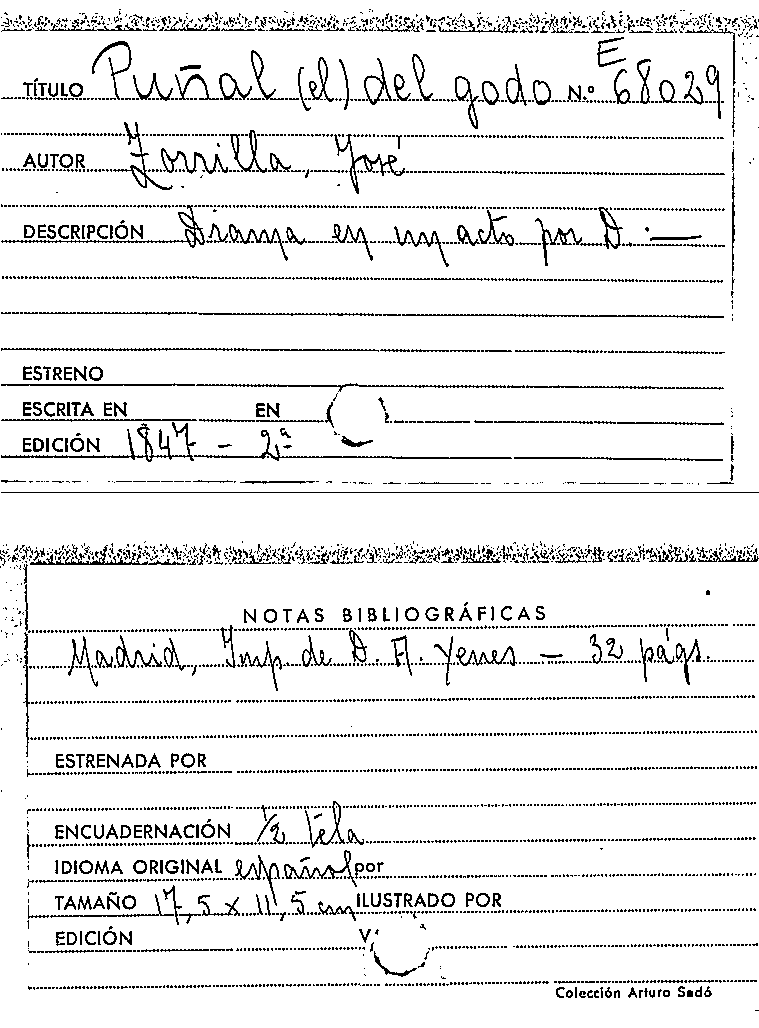 E
TÍTULO Puñal (el) del godo N.º 68029
AUTOR Zorrilla, José
DESCRIPCIÓN Drama en un acto por D. —
ESTRENO
ESCRITA EN EN
EDICIÓN 1847 - 2ª
NOTAS BIBLIOGRÁFICAS
Madrid, Imp. de D. A. Yenes — 32 págs.
ESTRENADA POR
ENCUADERNACIÓN 1/2 tela
IDIOMA ORIGINAL español por
TAMAÑO 17,5 x 11,5 cm ILUSTRADO POR
EDICIÓN V
Colección Arturo Sedó